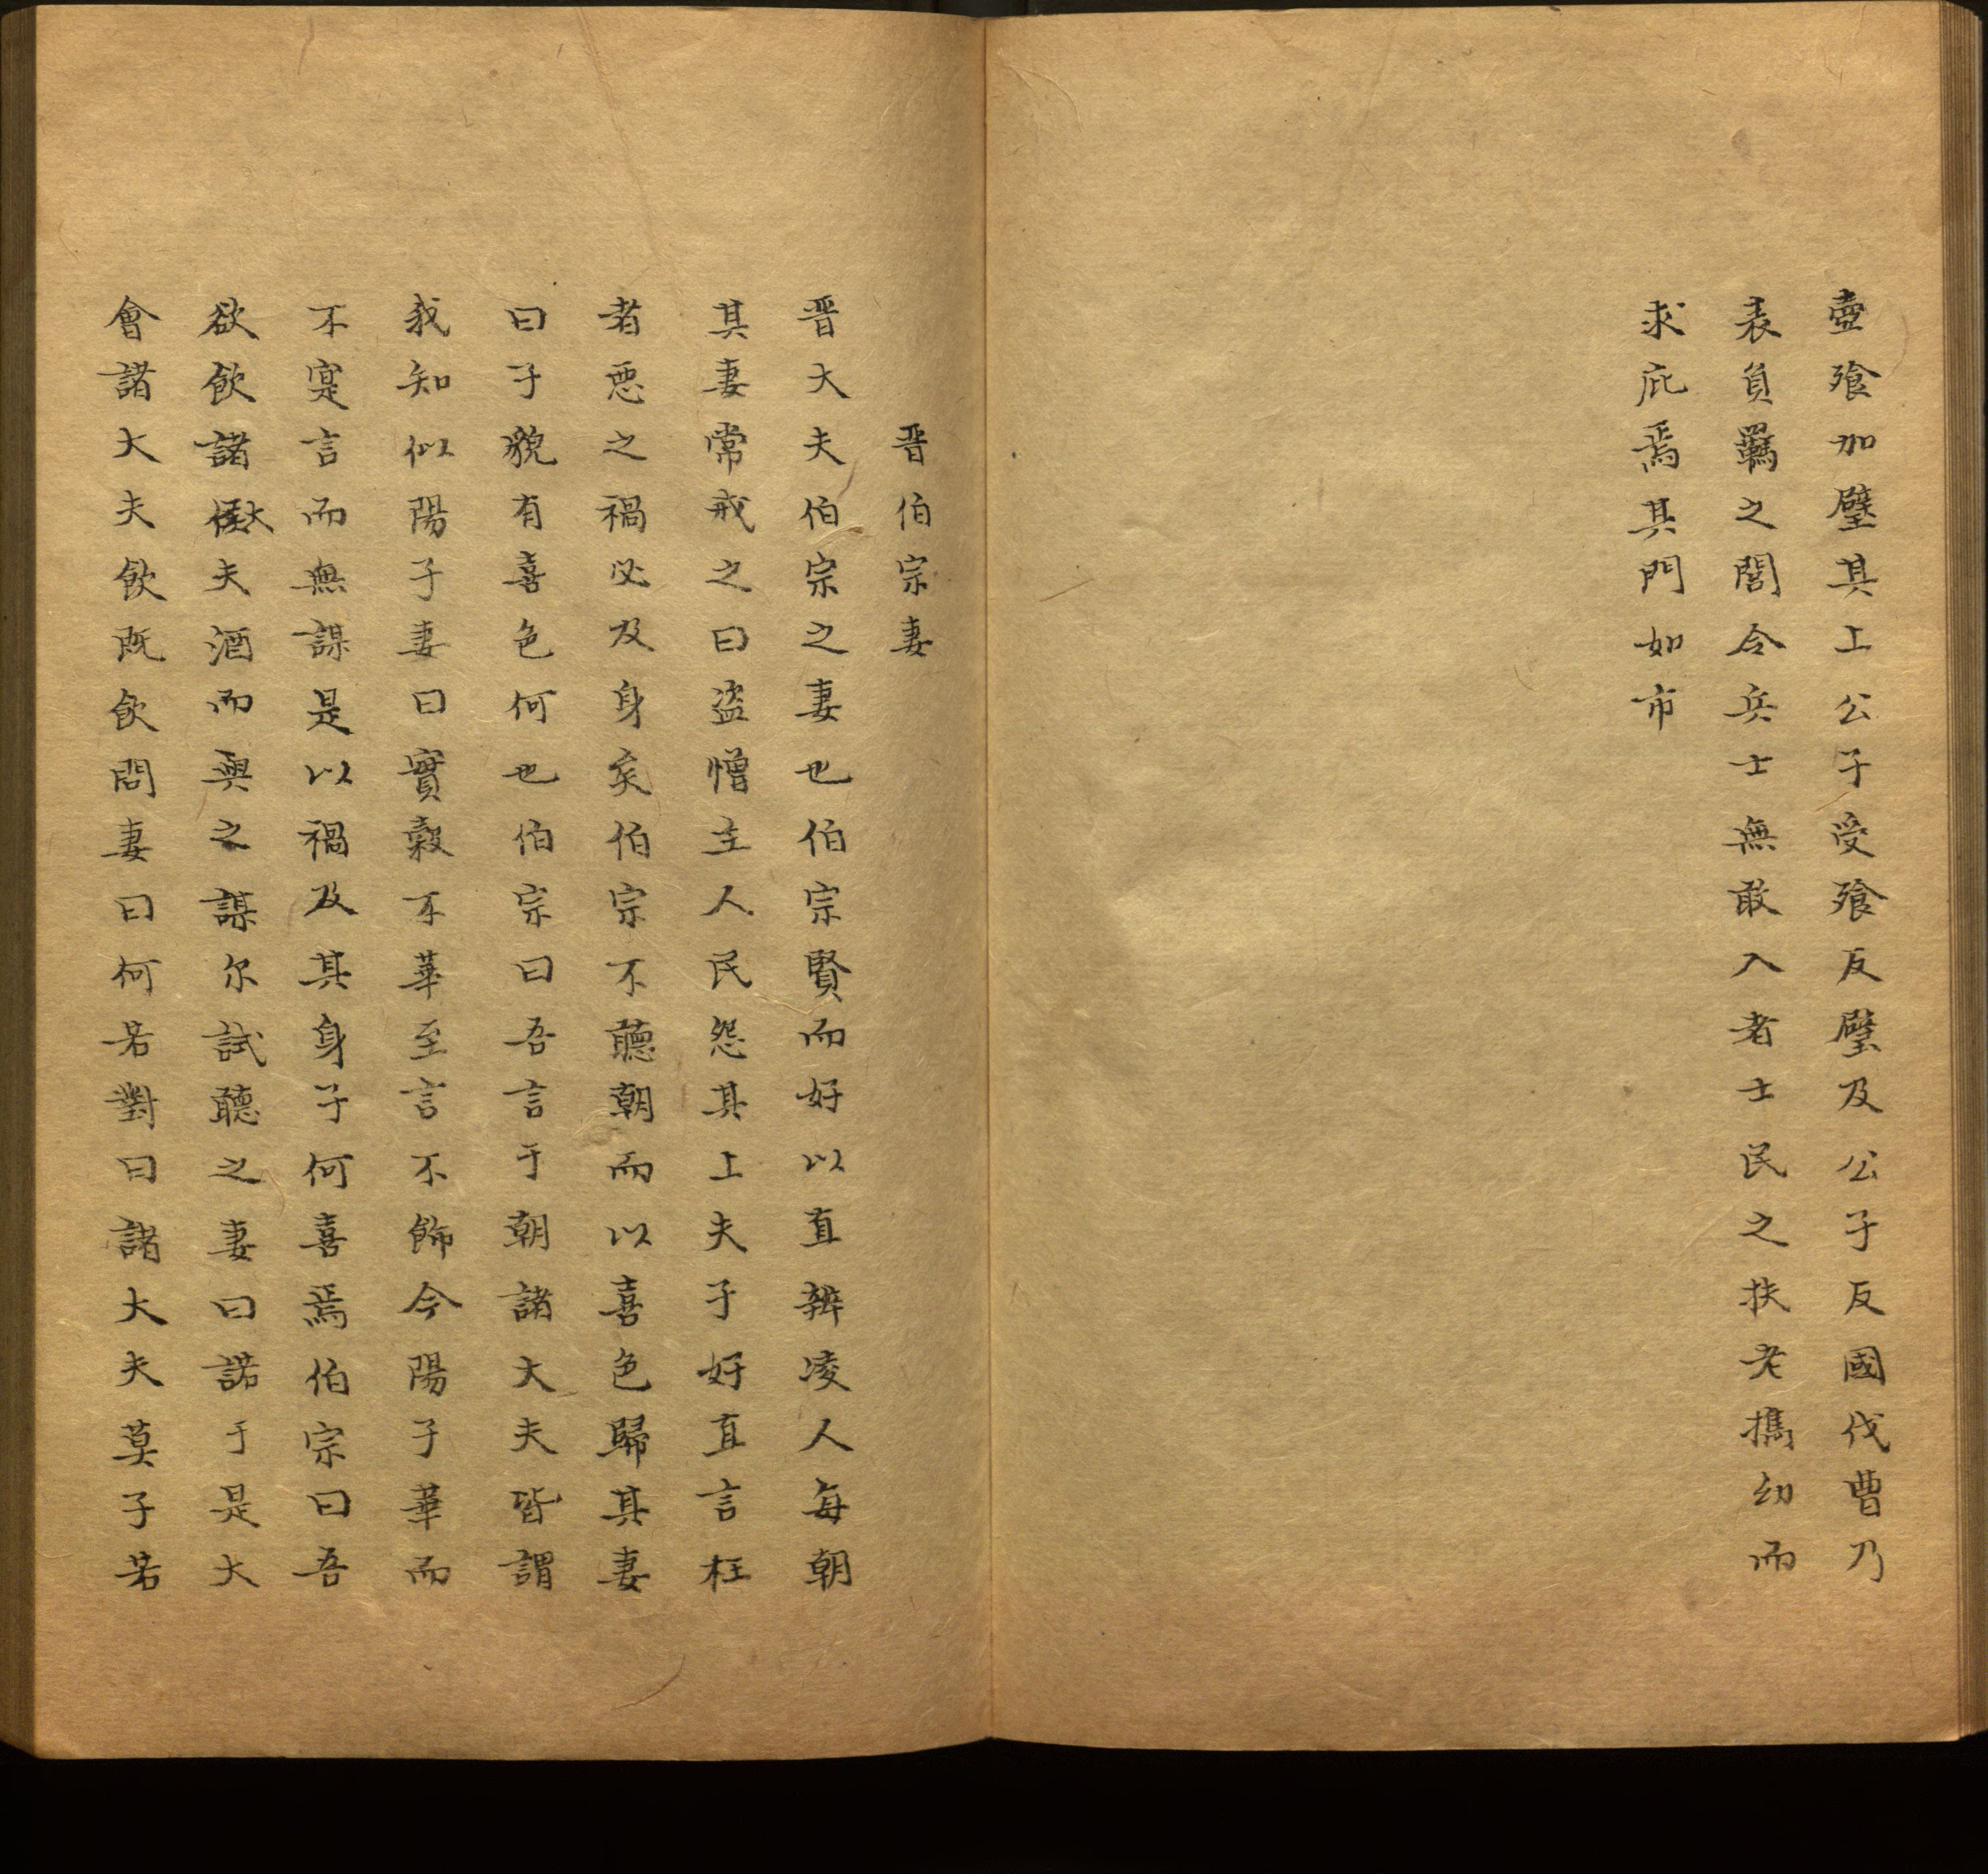 壺飱加璧其上公子受飱反璧及公子反國伐曹乃
表負羈之閭令兵士無敢入者士民之扶老攜幼而
求庇焉其門如市
晋伯宗妻
晋大夫伯宗之妻也伯宗賢而好以直辨凌人每朝
其妻常戒之曰盜憎主人民怨其上夫子好直言枉
者惡之禍必及身矣伯宗不聽朝而以喜色歸其妻
曰子貌有喜色何也伯宗曰吾言于朝諸大夫皆謂
我知似陽子妻曰實穀不華至言不飾今陽子華而
不寔言而無謀是以禍及其身子何喜焉伯宗曰吾
欲飲諸大夫酒而與之謀尔試聽之妻曰諾于是大
會諸大夫飲既飲問妻曰何若對曰諸大夫莫子若